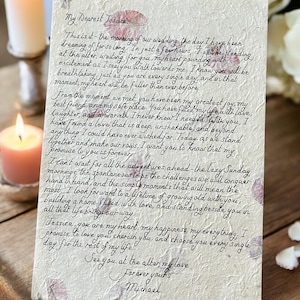 My Dearest Jessica,
This is it - the morning of our wedding, the day I have been
dreaming of for so long. In just a few hours, I will be standing
at the altar, waiting for you, my heart pounding with
excitement as I see you walk towards me. I know you will be
breathtaking, just as you are every single day, and in that
moment, my heart will be fuller than ever before.
From the moment we met, you have been my greatest joy, my
best friend, and my safe place. You have filled my life with love,
laughter, and a warmth I never knew I needed. With you, I
have found a love that is deep, unshakable, and beyond
anything I could have ever wished for. Today, as we stand
together and make our vows, I want you to know that my
heart is yours forever.
I can't wait for all the adventures ahead - the lazy Sunday
mornings, the spontaneous trips, the challenges we will conquer
hand in hand, and the simple moments that will mean the
most. I look forward to a lifetime of growing old with you,
building a home filled with love, and standing beside you in
all that life brings our way.
Jessica, you are my heart, my happiness, my everything. I
promise to love you, cherish you, and choose you every single
day for the rest of my life.
See you at the altar, my love
Forever yours,
Michael